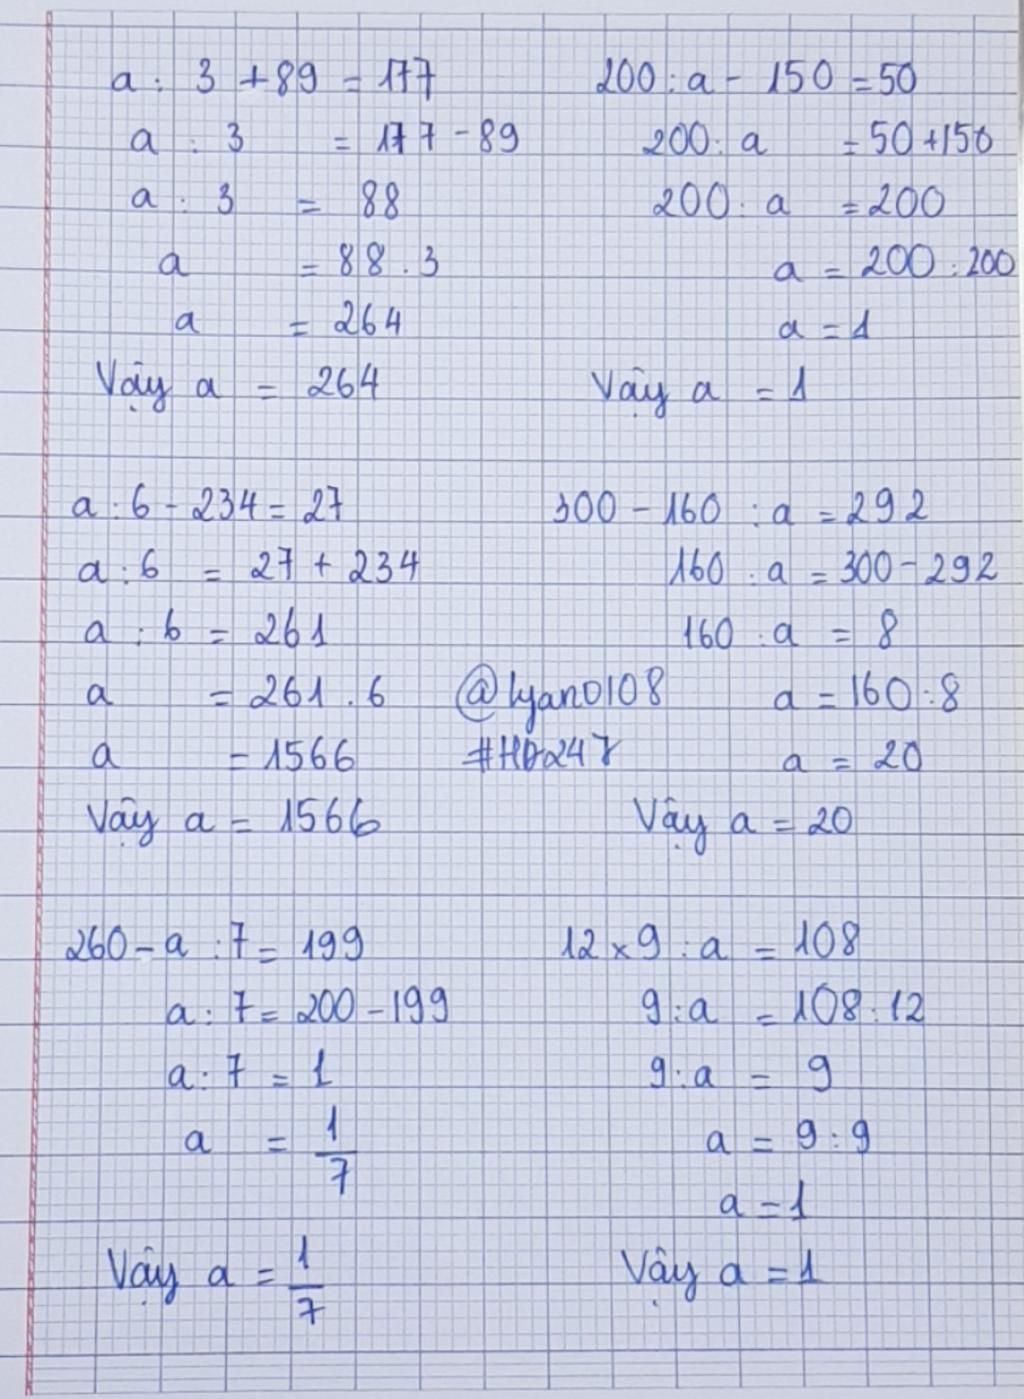 a : 3 + 89 = 177
a : 3 = 177 - 89
a : 3 = 88
a = 88 . 3
a = 264
Vậy a = 264
200 : a - 150 = 50
200 : a = 50 + 150
200 : a = 200
a = 200 : 200
a = 1
Vậy a = 1
a : 6 - 234 = 27
a : 6 = 27 + 234
a : 6 = 261
a = 261 . 6
a = 1566
Vậy a = 1566
300 - 160 : a = 292
160 : a = 300 - 292
160 : a = 8
a = 160 : 8
a = 20
Vậy a = 20
@lyan0108
#HD247
260 - a : 7 = 199
a : 7 = 200 - 199
a : 7 = 1
a = 1/7
Vậy a = 1/7
12 x 9 : a = 108
9 : a = 108 : 12
9 : a = 9
a = 9 : 9
a = 1
Vậy a = 1